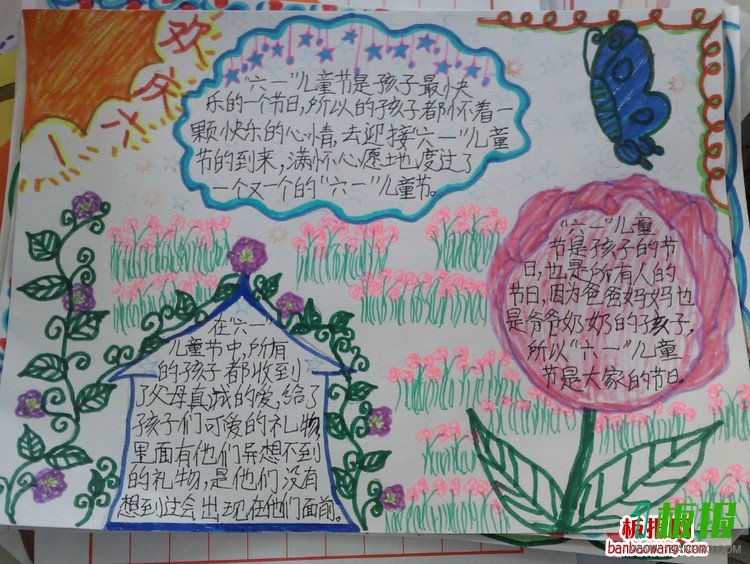 欢庆六一
"六一"儿童节是孩子最快
乐的一个节日,所以的孩子都怀着一
颗快乐的心情,去迎接"六一"儿童
节的到来,满怀心愿地度过了
一个又一个的"六一"儿童节。
"六一"儿童
节是孩子的节
日,也是所有人的
节日,因为爸爸妈妈也
是爷爷奶奶的孩子,
所以"六一"儿童
节是大家的节日。
在"六一"
儿童节中,所有
的孩子都收到
了父母真成的爱,给了
孩子们可爱的礼物,
里面有他们异想不到
的礼物,是他们没有
想到过会出现在他们面前。
板报
板报网
banbaowang.com